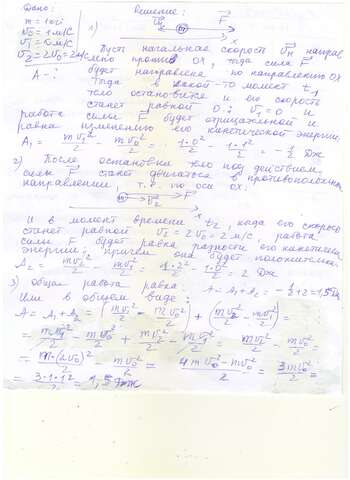 Дано: Решение:
m = 1 кг 1) v₀ F
v₀ = 1 м/с x
v₁ = 0 м/с Пусть начальная скорость направ
v₂ = 2v₀ = 2 м/с лено против OX, тогда сила F
A - ? будет направлена по направлению OX
Тогда в какой-то момент t₁
тело остановится и его скорость
станет равной 0; v₁ = 0 и
работа силы F будет отрицательной и
равна изменению его кинетической энергии.
A₁ = mv₁²/2 - mv₀²/2 = 1·0²/2 - 1·1²/2 = -1/2 Дж
2) После остановки тело под действием
силы F станет двигаться в противоположном
направлении, т.е. по оси ox:
v₂ F
x
И в момент времени t₂, когда его скорость
станет равной v₂ = 2v₀ = 2 м/с работа
силы F будет равна разности его кинетич.
энергий: причем она будет положительна.
A₂ = mv₂²/2 - mv₁²/2 = 1·2²/2 - 1·0²/2 = 2 Дж
3) Общая работа равна: A = A₁ + A₂ = -1/2 + 2 = 1,5 Дж
Или в общем виде:
A = A₁ + A₂ = (mv₁²/2 - mv₀²/2) + (mv₂²/2 - mv₁²/2) =
= mv₁²/2 - mv₀²/2 + mv₂²/2 - mv₁²/2 = mv₂²/2 - mv₀²/2 =
= m(2v₀)²/2 - mv₀²/2 = 4mv₀² - mv₀²/2 = 3mv₀²/2 =
= 3·1·1²/2 = 1,5 Дж